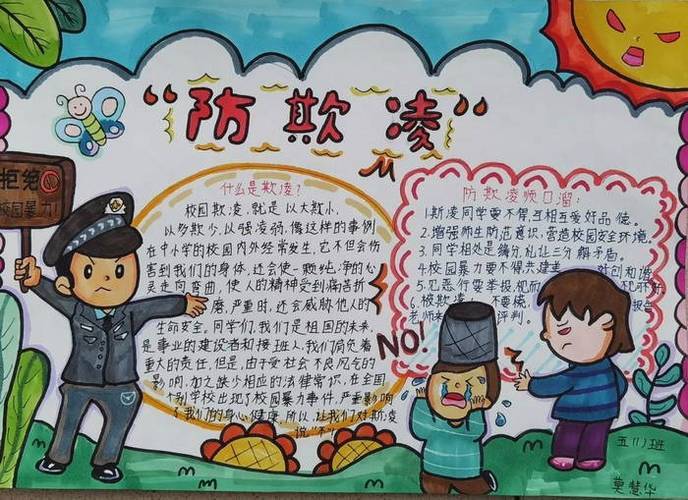 “防欺凌”
拒绝
校园暴力!
什么是欺凌?
校园欺凌,就是以大欺小,
以多欺少,以强凌弱,像这样的事例
在中小学的校园内外经常发生,它不但会伤
害到我们的身体,还会使一颗纯净的心
灵走向弯曲,使人的精神受到痛苦折
磨,严重时,还会威胁他人的
生命安全。同学们,我们是祖国的未来,
是事业的建设者和接班人,我们肩负着
重大的责任,但是,由于受社会不良风气的
影响,加之缺少相应的法律常识,在全国
个别学校出现了校园暴力事件,严重影响
了我们的身心健康,所以,让我们对欺凌
说“不”
防欺凌顺口溜:
1.欺凌同学要不得,互相互爱好品德。
2.增强师生防范意识,营造校园安全环境。
3.同学相处是缘分,礼让三分解矛盾。
4.校园暴力要不得,共建 创和谐
5.见恶行要举报,
6.被欺凌, 不要 报告
老师来评判。
NO!
五(1)班
莫慧华